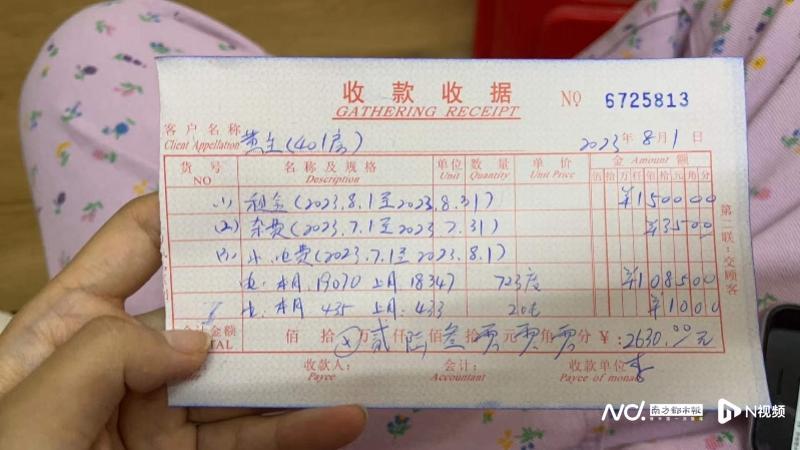 收款收据
GATHERING RECEIPT
NO 6725813
客户名称
Client Appellation 黄生(401房)
2023年8月1日
货号 名称及规格 单位 数量 单价 金 Amount 额
NO Description Unit Quantity Unit Price 佰拾万仟佰拾元角分
(1) 租金(2023.8.1至2023.8.31) ¥150000
(2) 杂费(2023.7.1至2023.7.31) ¥3500
(3) 水.电费(2023.7.1至2023.8.1)
电:本月 19070 上月 18347 723度 ¥108500
水:本月 435 上月:433 2吨 ¥1000
金额 佰 拾 万贰仟陆佰叁拾零元零角零分 ¥:2630.00元
TAL
收款人: 会计: 收款单位
Payee Accountant Payee of mona
第二联:交顾客
N 南方都市报 N视频